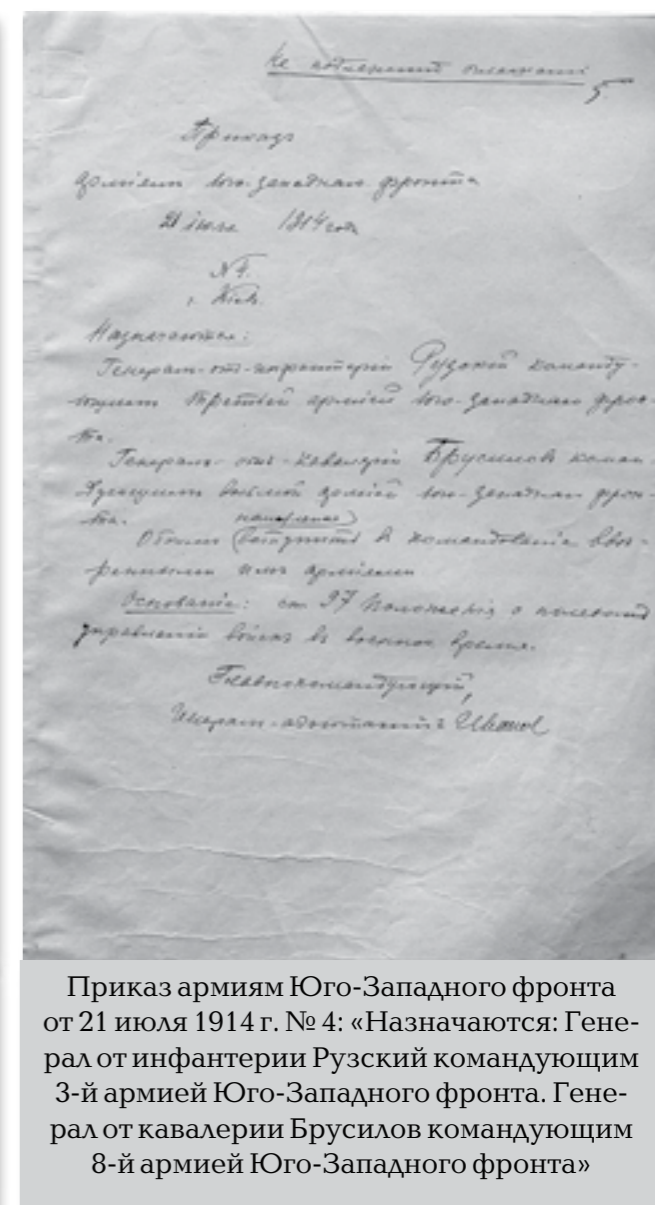 Не подлежит оглашению
5
Приказ
армиям Юго-Западнаго фронта
21 июля 1914 года
№ 4.
г. Киев.
Назначаются:
Генерал-от-инфантерии Рузский команду-
ющим третьей армией Юго-Западнаго фрон-
та.
Генерал-от-кавалерии Брусилов коман-
дующим восьмой армией Юго-Западнаго фрон-
та.
Обоим вступить в командование вве-
ренными им армиями
Основание: ст. 97 Положения о полевом
управлении войск в военное время.
Главнокомандующий,
Генерал-адъютант Иванов
Приказ армиям Юго-Западного фронта
от 21 июля 1914 г. № 4: «Назначаются: Гене-
рал от инфантерии Рузский командующим
3-й армией Юго-Западного фронта. Гене-
рал от кавалерии Брусилов командующим
8-й армией Юго-Западного фронта»